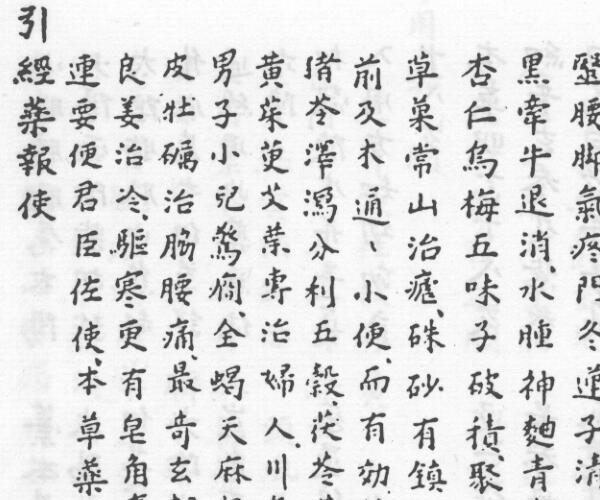 腰脚氣疼門冬連子清
黑牽牛退消水腫神麯青
杏仁烏梅五味子破積聚
草菓常山治瘧硃砂有鎮
前及木通、小便而有効
猪苓澤瀉分利五穀茯苓
黄茱萸艾葉專治婦人川
男子小児驚癇全蝎天麻
皮牡礪治肠腰痛最奇玄
良姜治冷驅寒更有皂角
連要使君臣佐使本草薬
引經薬報使